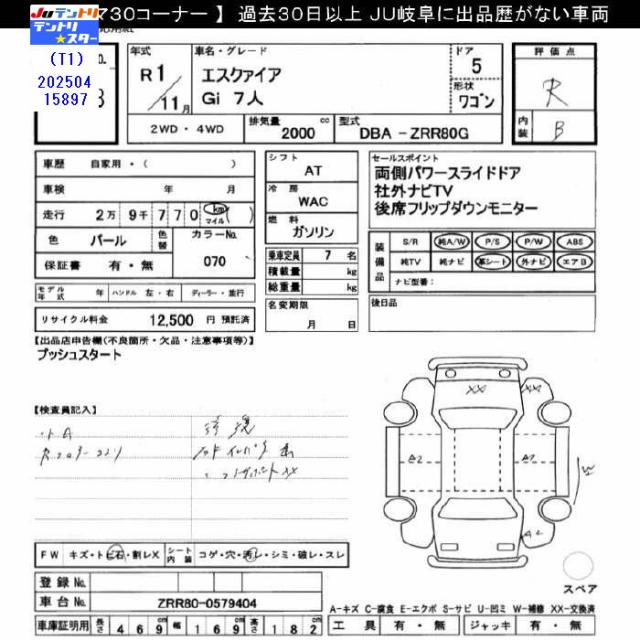 マ30コーナー 】 過去30日以上 JU岐阜に出品歴がない車両
JUテントリ
テントリ
テントリ★スター
(T1)
202504
15897
年式
R1/11月
車名・グレード
エスクァイア
Gi 7人
ドア
5
形状
ワゴン
評価点
R
内装
B
2WD・4WD
排気量
2000 cc
型式
DBA －ZRR80G
車歴 自家用・( )
車検 年 月
走行 2万 9千 7 7 0 km マイル ( )
色 パール
色替
カラーNo.
070
保証書 有・無
モデル年式 年 ハンドル 左・右 ディーラー・並行
リサイクル料金 12,500 円 預託済
シフト
AT
冷房
WAC
燃料
ガソリン
乗車定員 7 名
積載量 kg
総重量 kg
名変期限
月 日
セールスポイント
両側パワースライドドア
社外ナビTV
後席フリップダウンモニター
装備品
S/R 純A/W P/S P/W ABS
純TV 純ナビ 革シート 外ナビ エアB
ナビ型番:
後日品
【出品店申告欄(不良箇所・欠品・注意事項等)】
プッシュスタート
【検査員記入】
XX
XX
A2
A2
W
A2
FW キズ・トビ石・割レX シート内装 コゲ・穴・汚レ・シミ・破レ・スレ
登録 No.
車台 No. ZRR80-0579404
車庫証明用 長さ 4 6 9 cm 幅 1 6 9 cm 高さ 1 8 2 cm
スペア
A-キズ C-腐食 E-エクボ S-サビ U-凹ミ W-補修 XX-交換済
工具 有・無 ジャッキ 有・無